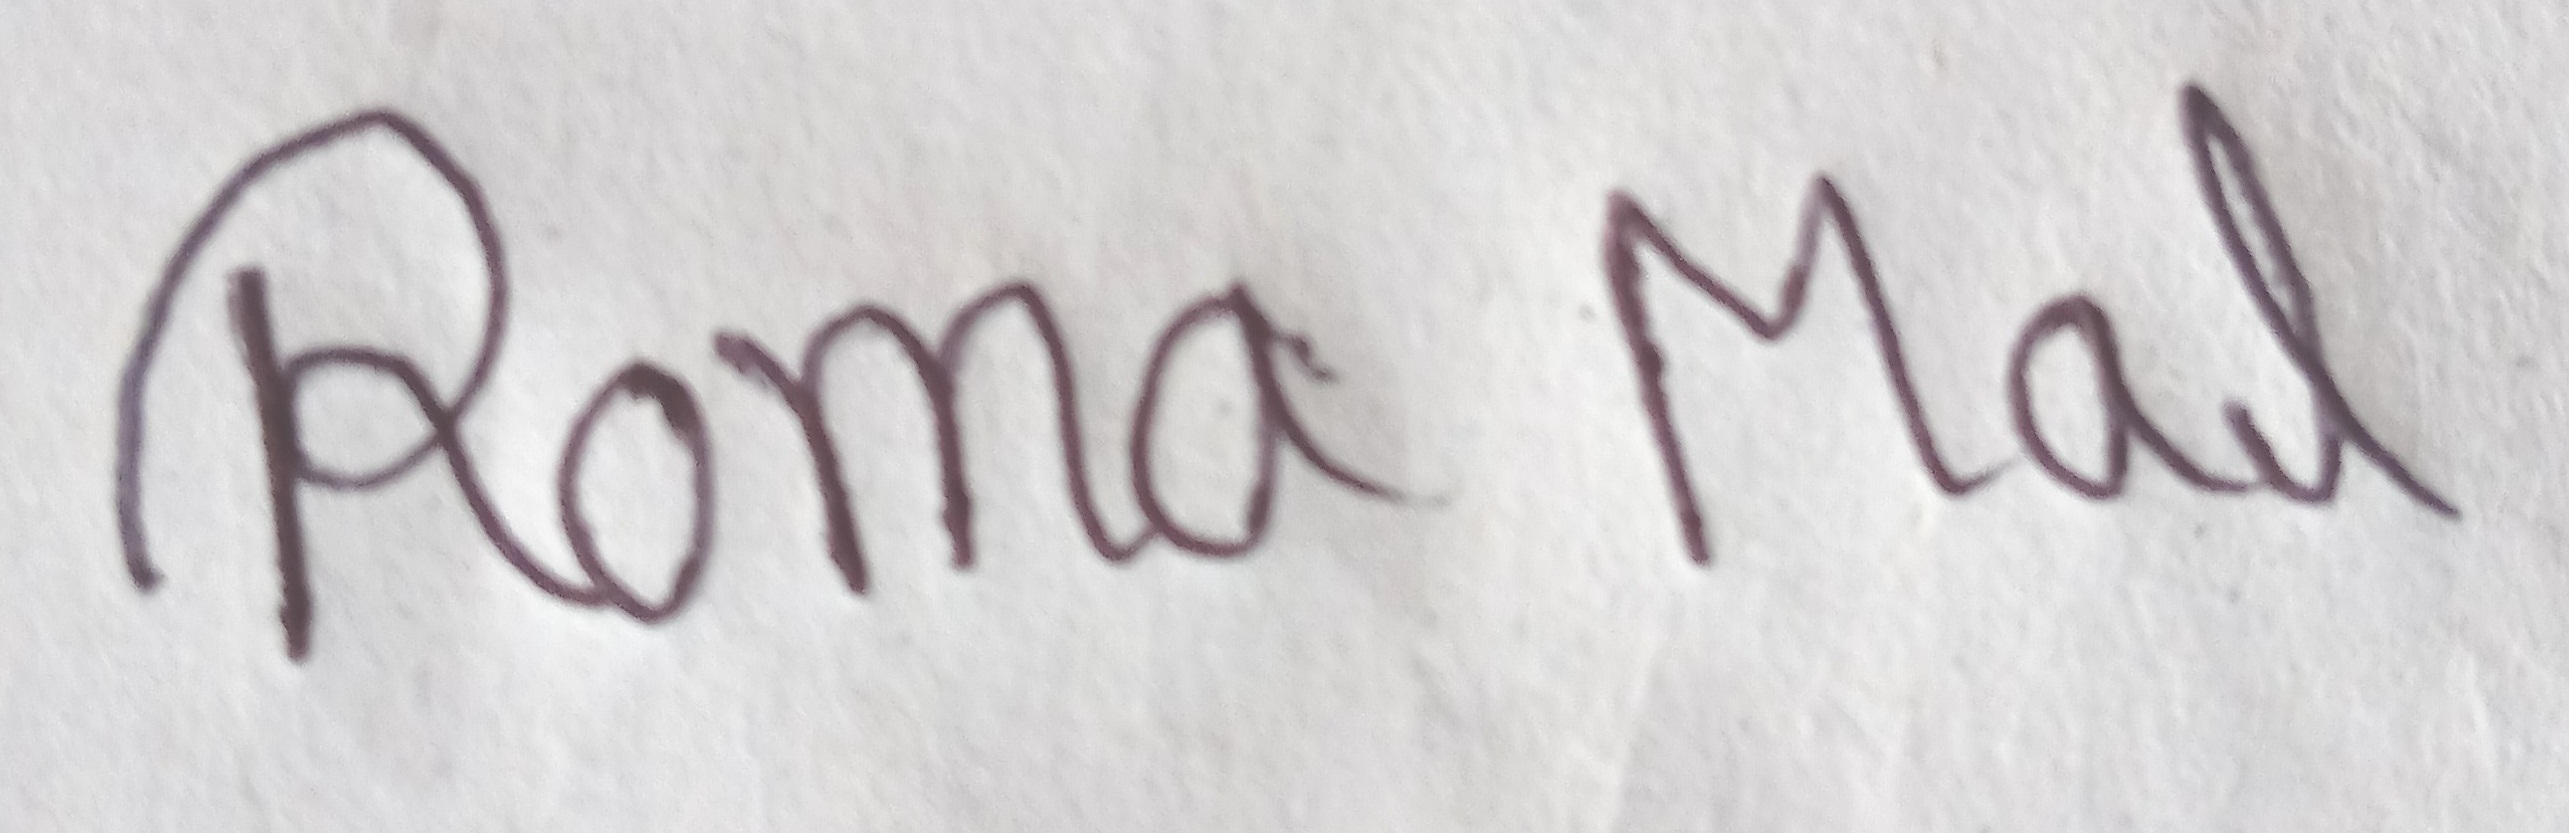 Roma Mal